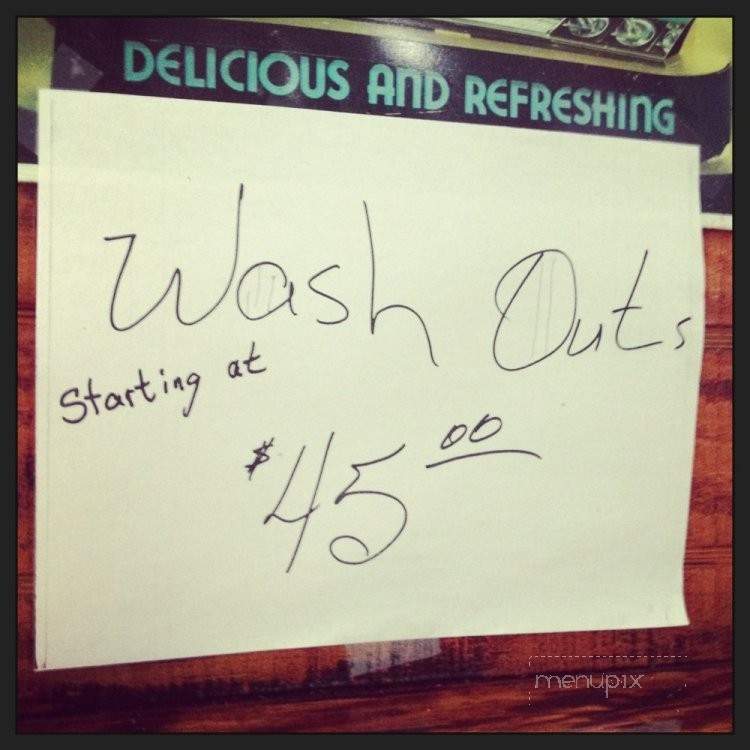 DELICIOUS AND REFRESHING
Wash Outs
Starting at
$45.00
menupix